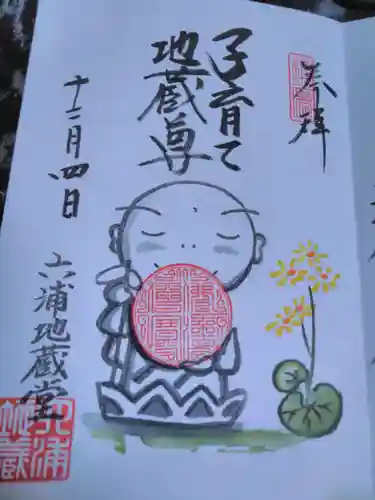 奉拝
子育て
地蔵尊
十二月四日
六浦地蔵堂
六浦
地蔵